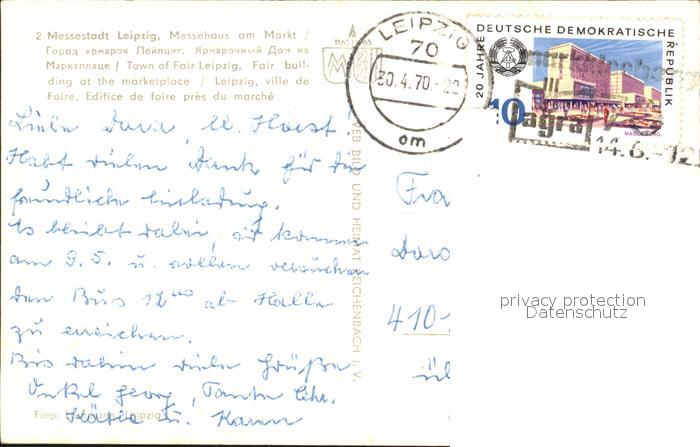 2 Messestadt Leipzig, Messehaus am Markt /
Город ярмарок Лейпциг, Ярмарочный Дом на
Марктплаце / Town of Fair Leipzig, Fair buil-
ding at the marketplace / Leipzig, ville de
Foire, Edifice de foire près du marché
LEIPZIG
70
30.4.70.-22
om
20 JAHRE DEUTSCHE DEMOKRATISCHE REPUBLIK
10
MAGDEBURG
agra
14.6.-12
Liebe Dora, u. Horst!
Habt vielen Dank für die
freundliche Einladung.
Es bleibt dabei, wir kommen
am 9.5. u. wollen versuchen
den Bus 12⁰⁰ ab Halle
zu erreichen.
Bis dahin viele Grüße
Onkel Georg, Tante Chr.
Käthe u. Karen
Foto: Hofmann, Leipzig
VEB BILD UND HEIMAT REICHENBACH i. V.
Fra
Doro
410
privacy protection
Datenschutz